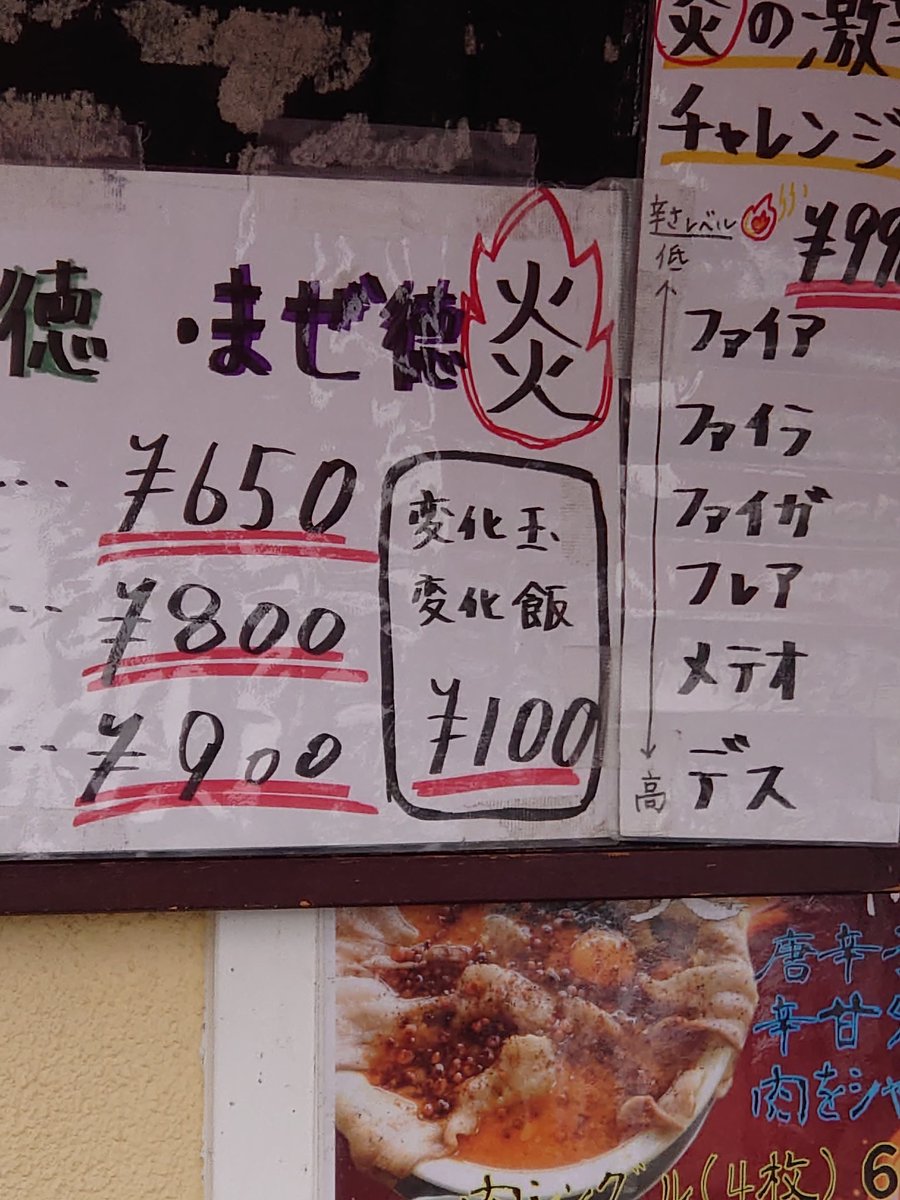 徳 ・まぜ徳 炎
¥650
¥800
¥900
変化玉
変化飯
¥100
炎の激
チャレンジ
辛さレベル
¥99
低
ファイア
ファイラ
ファイガ
フレア
メテオ
デス
高
唐辛
辛甘
肉をシャ
肉シングル(4枚) 6